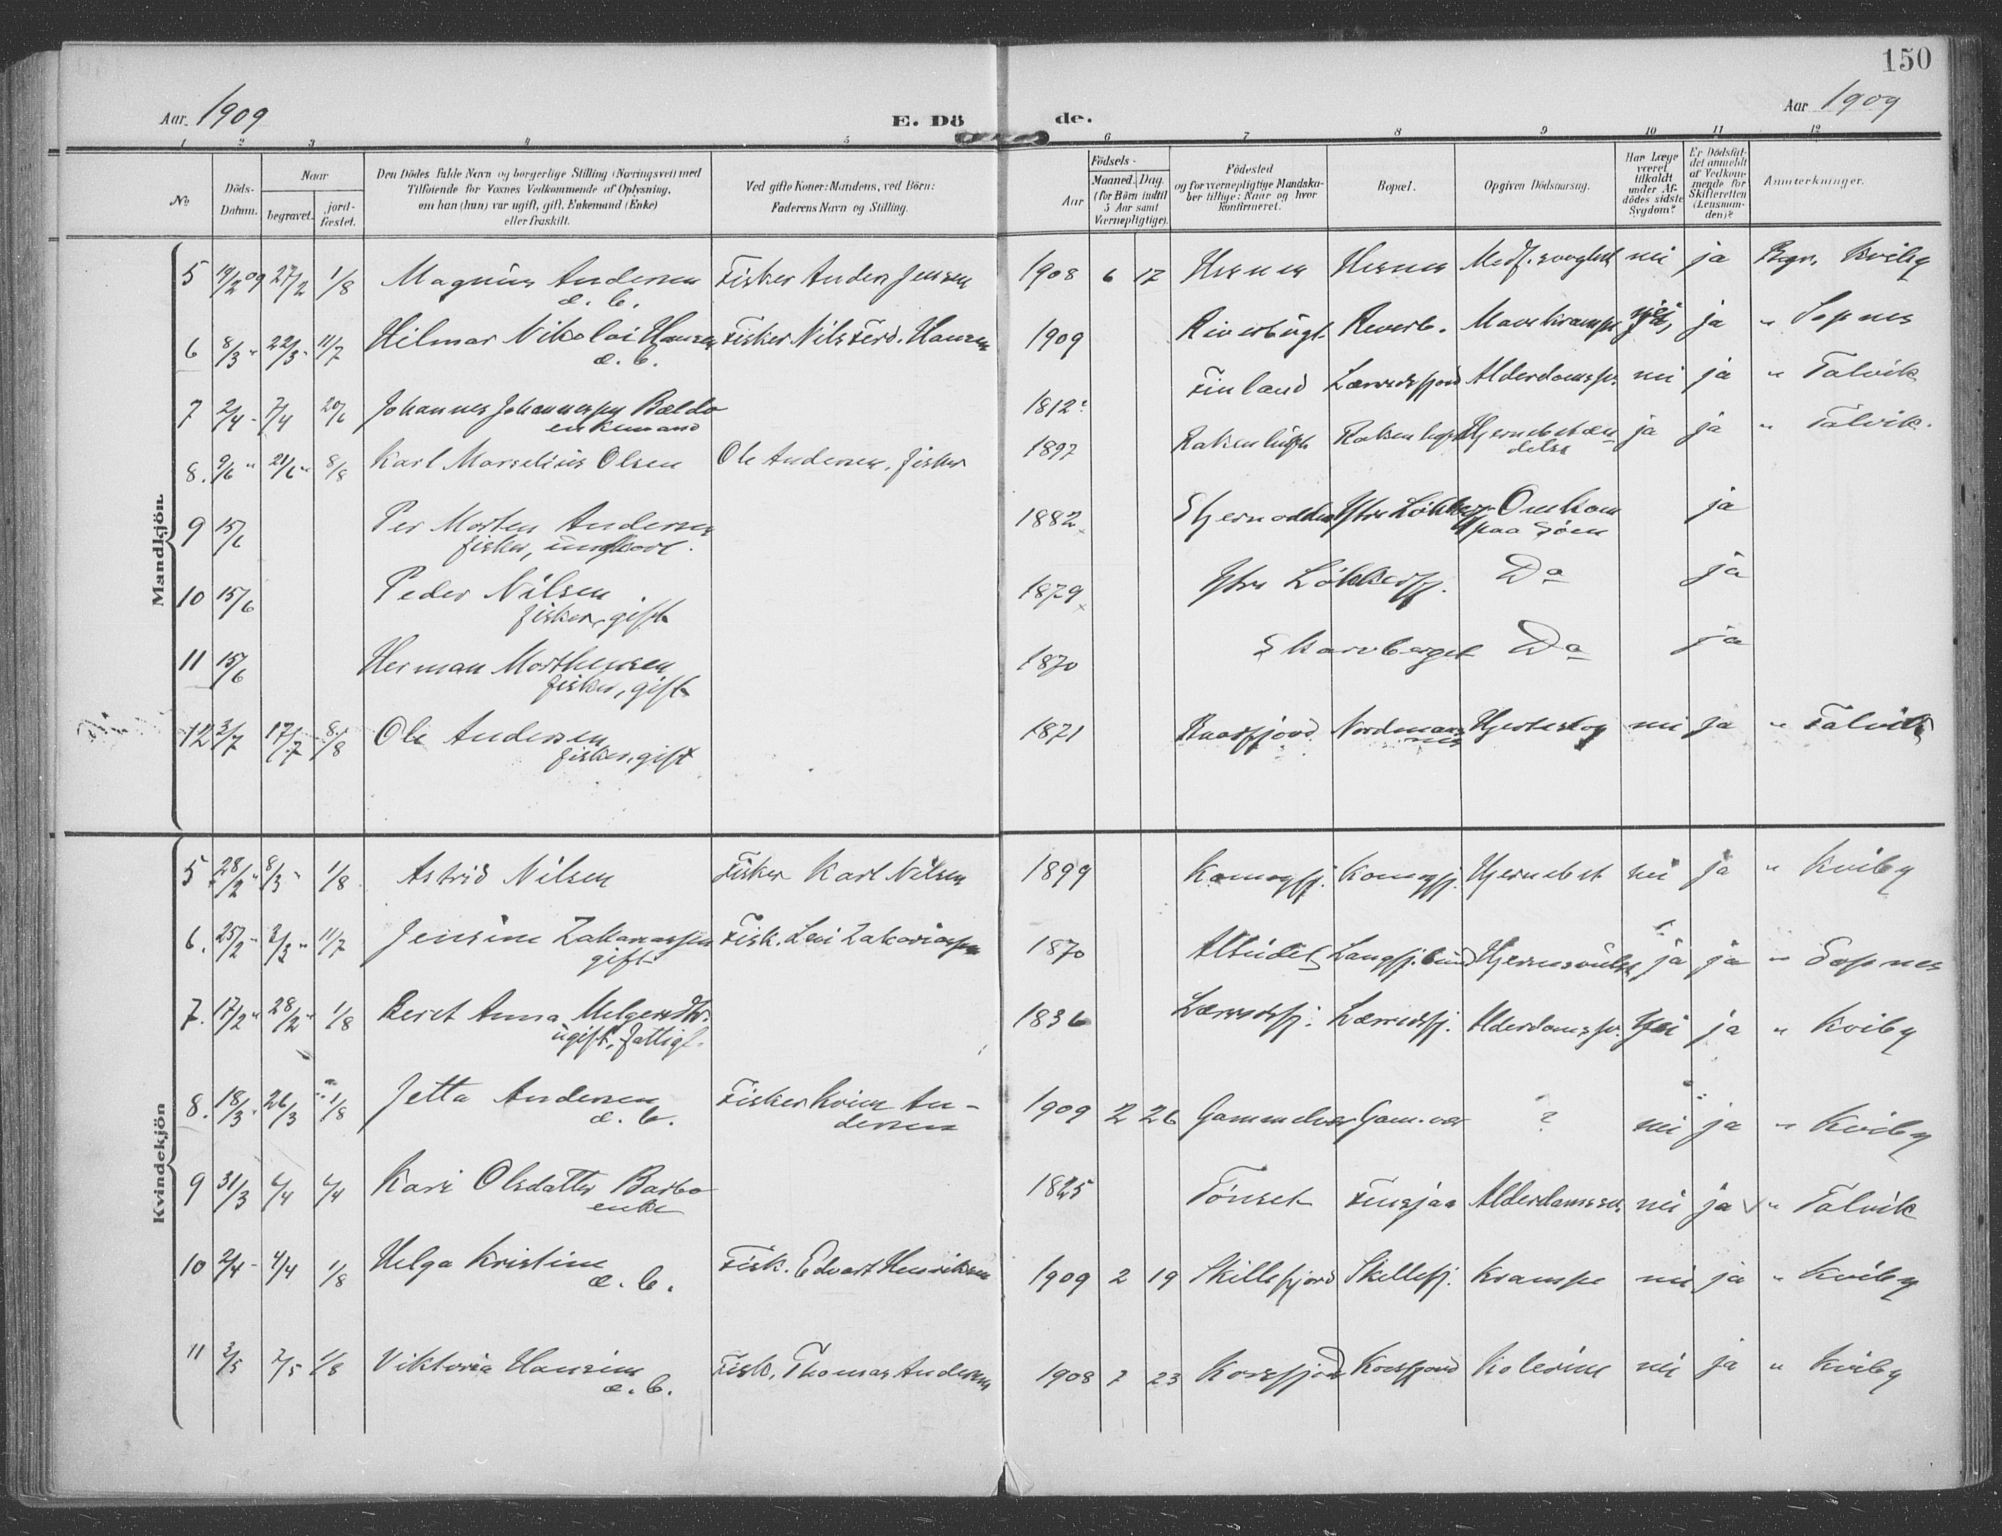 150
Aar 1909
E. Dö
de.
Aar 1909
1 2 3 4 5 6 7 8 9 10 11 12
No
Döds-Datum.
Naar
begravet.
jord-fæstet.
Den Dödes fulde Navn og borgerlige Stilling (Næringsvei) med
Tilföiende for Voxnes Vedkommende af Oplysning,
om han (hun) var ugift, gift, Enkemand (Enke)
eller fraskilt.
Ved gifte Koner: Mandens, ved Börn:
Faderens Navn og Stilling.
Aar
Födsels-
Maaned. Dag.
(for Börn indtil
5 Aar samt
Værnepligtige).
Födested
og for værnepligtige Mandska-
ber tillige: Naar og hvor
konfirmeret.
Bopæl.
Opgiven Dödsaarsag.
Har Læge
været
tilkaldt
under Af-
dödes sidste
Sygdom?
Er Dödsfal-
det anmeldt
af Vedkom-
mende for
Skifteretten
(Lensman-
den)?
Anmerkninger.
Mandkjön.
5 19/2 09 27/2 1/8 Magnus Andersen Fisker Anders Jensen 1908 6 17 Hesnes Hesnes Medf. svaghed nei ja Bgr. Kviby
æ. b.
6 8/3 " 22/3 " 11/7 Hilmar Nikolai Hansen Fisker Nils Ferd. Hansen 1909 Riverbugt Reverb. Mavekrampe ja " Sopnes
æ. b.
7 2/4 - 7/4 20/6 Johannes Johannessen Bældo 1812 Finland Lærredsfjord Alderdomssv. nei ja " Talvik
enkemand
8. 9/6 " 21/6 " 8/8 Karl Marselius Olsen Ole Andersen, fisker 1897 Hjernebetæn ja ja " Talvik.
delse
9 15/6 Per Morten Andersen 1882 Ytre Omkom ja
fisker, ungkarl. paa Söen
10 15/6 Peder Nilsen 1879 Ytre Do ja
fisker, gift
11 15/6 Herman Morthensen 1870 Skarvberget Do ja
fisker, gift
12 2/7 17/7 8/8 Ole Andersen 1871 Nordmans Hjerteslag nei ja " Talvik
fisker, gift nes
Kvindekjön
5 28/2 " 8/3 " 1/8 Astrid Nilsen Fisker Karl Nilsen 1899 Komagfj. Komagfj. Hjernebet nei ja " Kviby
6. 25/2 " 3/3 " 11/7 Jensine Zakariassen Fisk. Levi Zakariassen 1870 Alteidet Langfj.bund ja ja " Sopnes
gift
7. 17/2 " 28/2 " 1/8 Beret Anna 1836 Lærredsfj. Lærredsfj. Alderdomssv. nei ja " Kviby
ugift, fattigl.
8. 18/3 " 26/3 1/8 Jetta Andersen Fisker An- 1909 2 26 Gammelvær Gam.vær ? nei ja " Kviby
æ. b. dersen
9 31/3 6/4 6/4 Kari Olsdatter Barbo 1825 Tönset Alderdomssv. nei ja " Talvik
enke
10 2/4 - 4/4 1/8 Helga Kristine Fisk. Edvart Henriksen 1909 2 19 Skillefjord Skillefj. Krampe nei ja " Kviby
æ. b.
11 2/5 7/5 1/8 Viktoria Hansine Fisk. Thomas Andersen 1908 7 23 Korsfjord Korsfjord Kolerine nei ja " Kviby
æ. b.